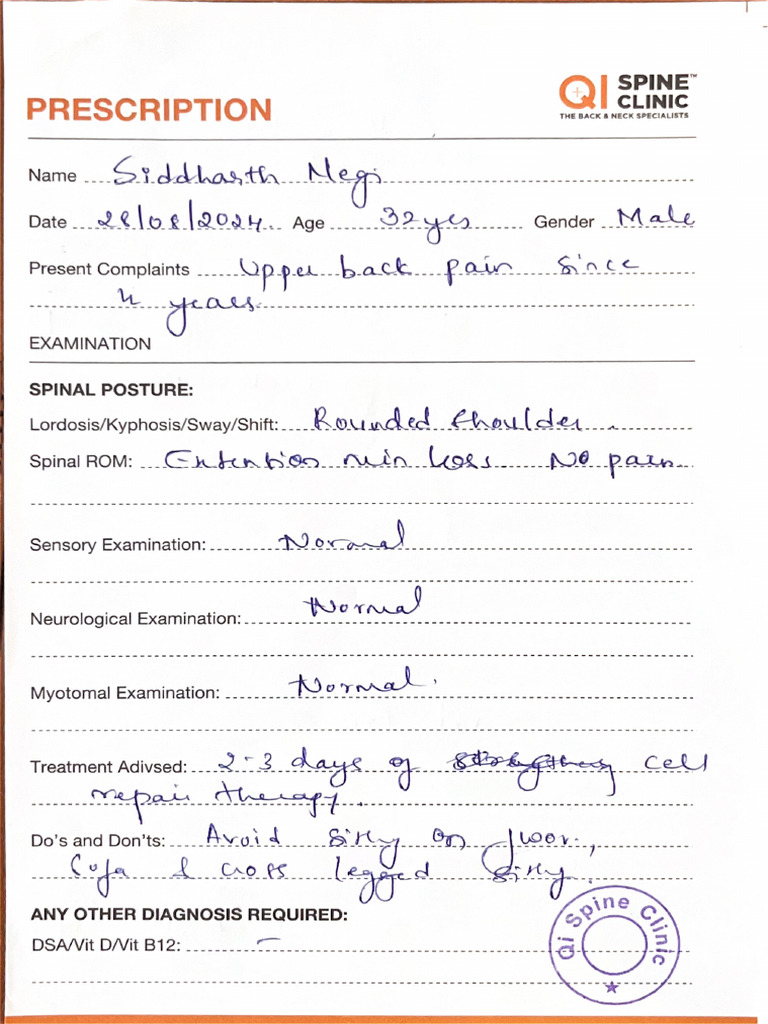 PRESCRIPTION
QI SPINE CLINIC™
THE BACK & NECK SPECIALISTS
Name Siddharth Negi
Date 28/08/2024 Age 32yrs Gender Male
Present Complaints Upper back pain since
4 years
EXAMINATION
SPINAL POSTURE:
Lordosis/Kyphosis/Sway/Shift: Rounded shoulder.
Spinal ROM: Extention min loss No pain
Sensory Examination: Normal
Neurological Examination: Normal
Myotomal Examination: Normal.
Treatment Adivsed: 2-3 days of cell
repair therapy.
Do's and Don'ts: Avoid sitting on floor,
Sofa & cross legged sitting.
ANY OTHER DIAGNOSIS REQUIRED:
DSA/Vit D/Vit B12: –
Qi Spine Clinic